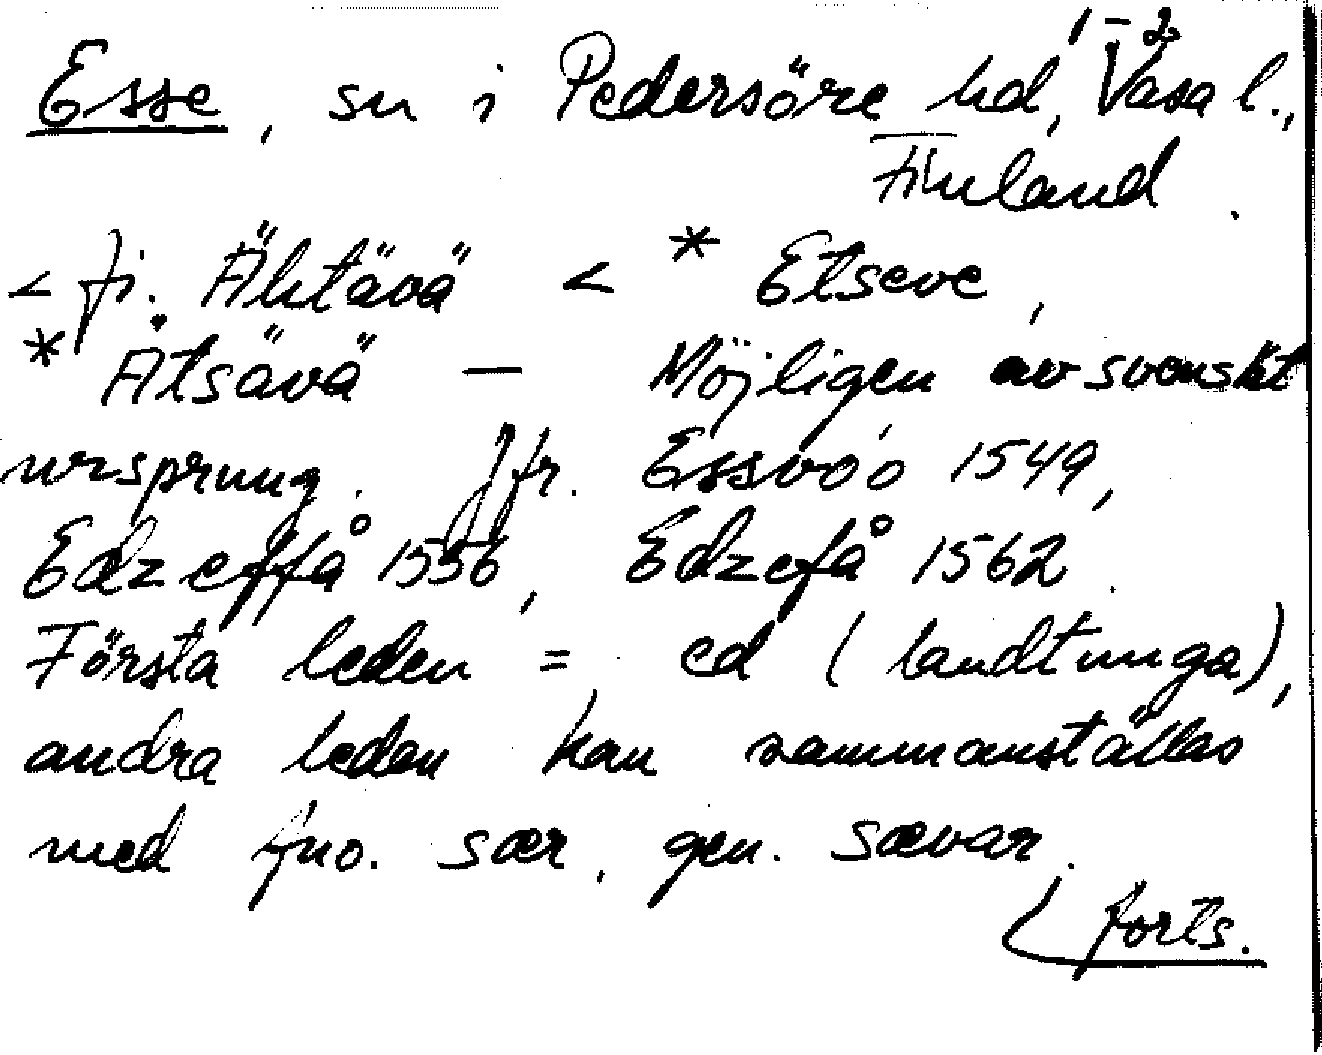 1-2
Esse, sn i Pedersöre hd, Vasa l.,
Finland.
< fi. Ähtävä < * Etseve,
* Ätsävä — Möjligen av svenskt
ursprung. Jfr. Essvoo 1549,
Edzeffå 1556, Edzefå 1562.
Första leden = ed (landtunga),
andra leden kan sammanställas
med fno. sær, gen. sævar.
forts.